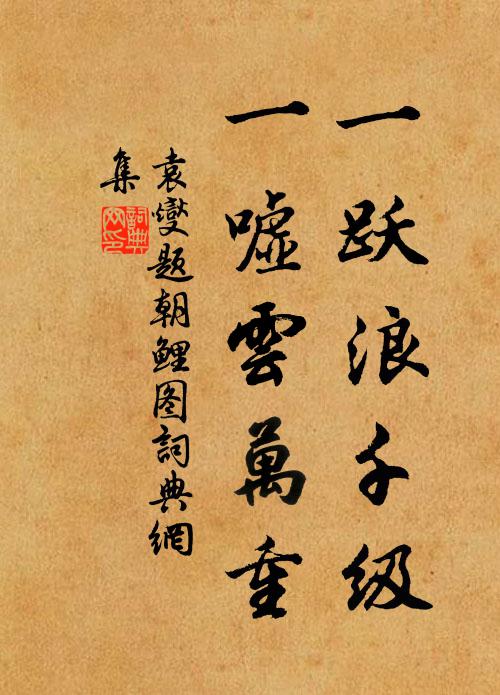 一跃浪千级
一嘘雲萬重
袁燮题朝鲤图詞典網
集
詞典网印